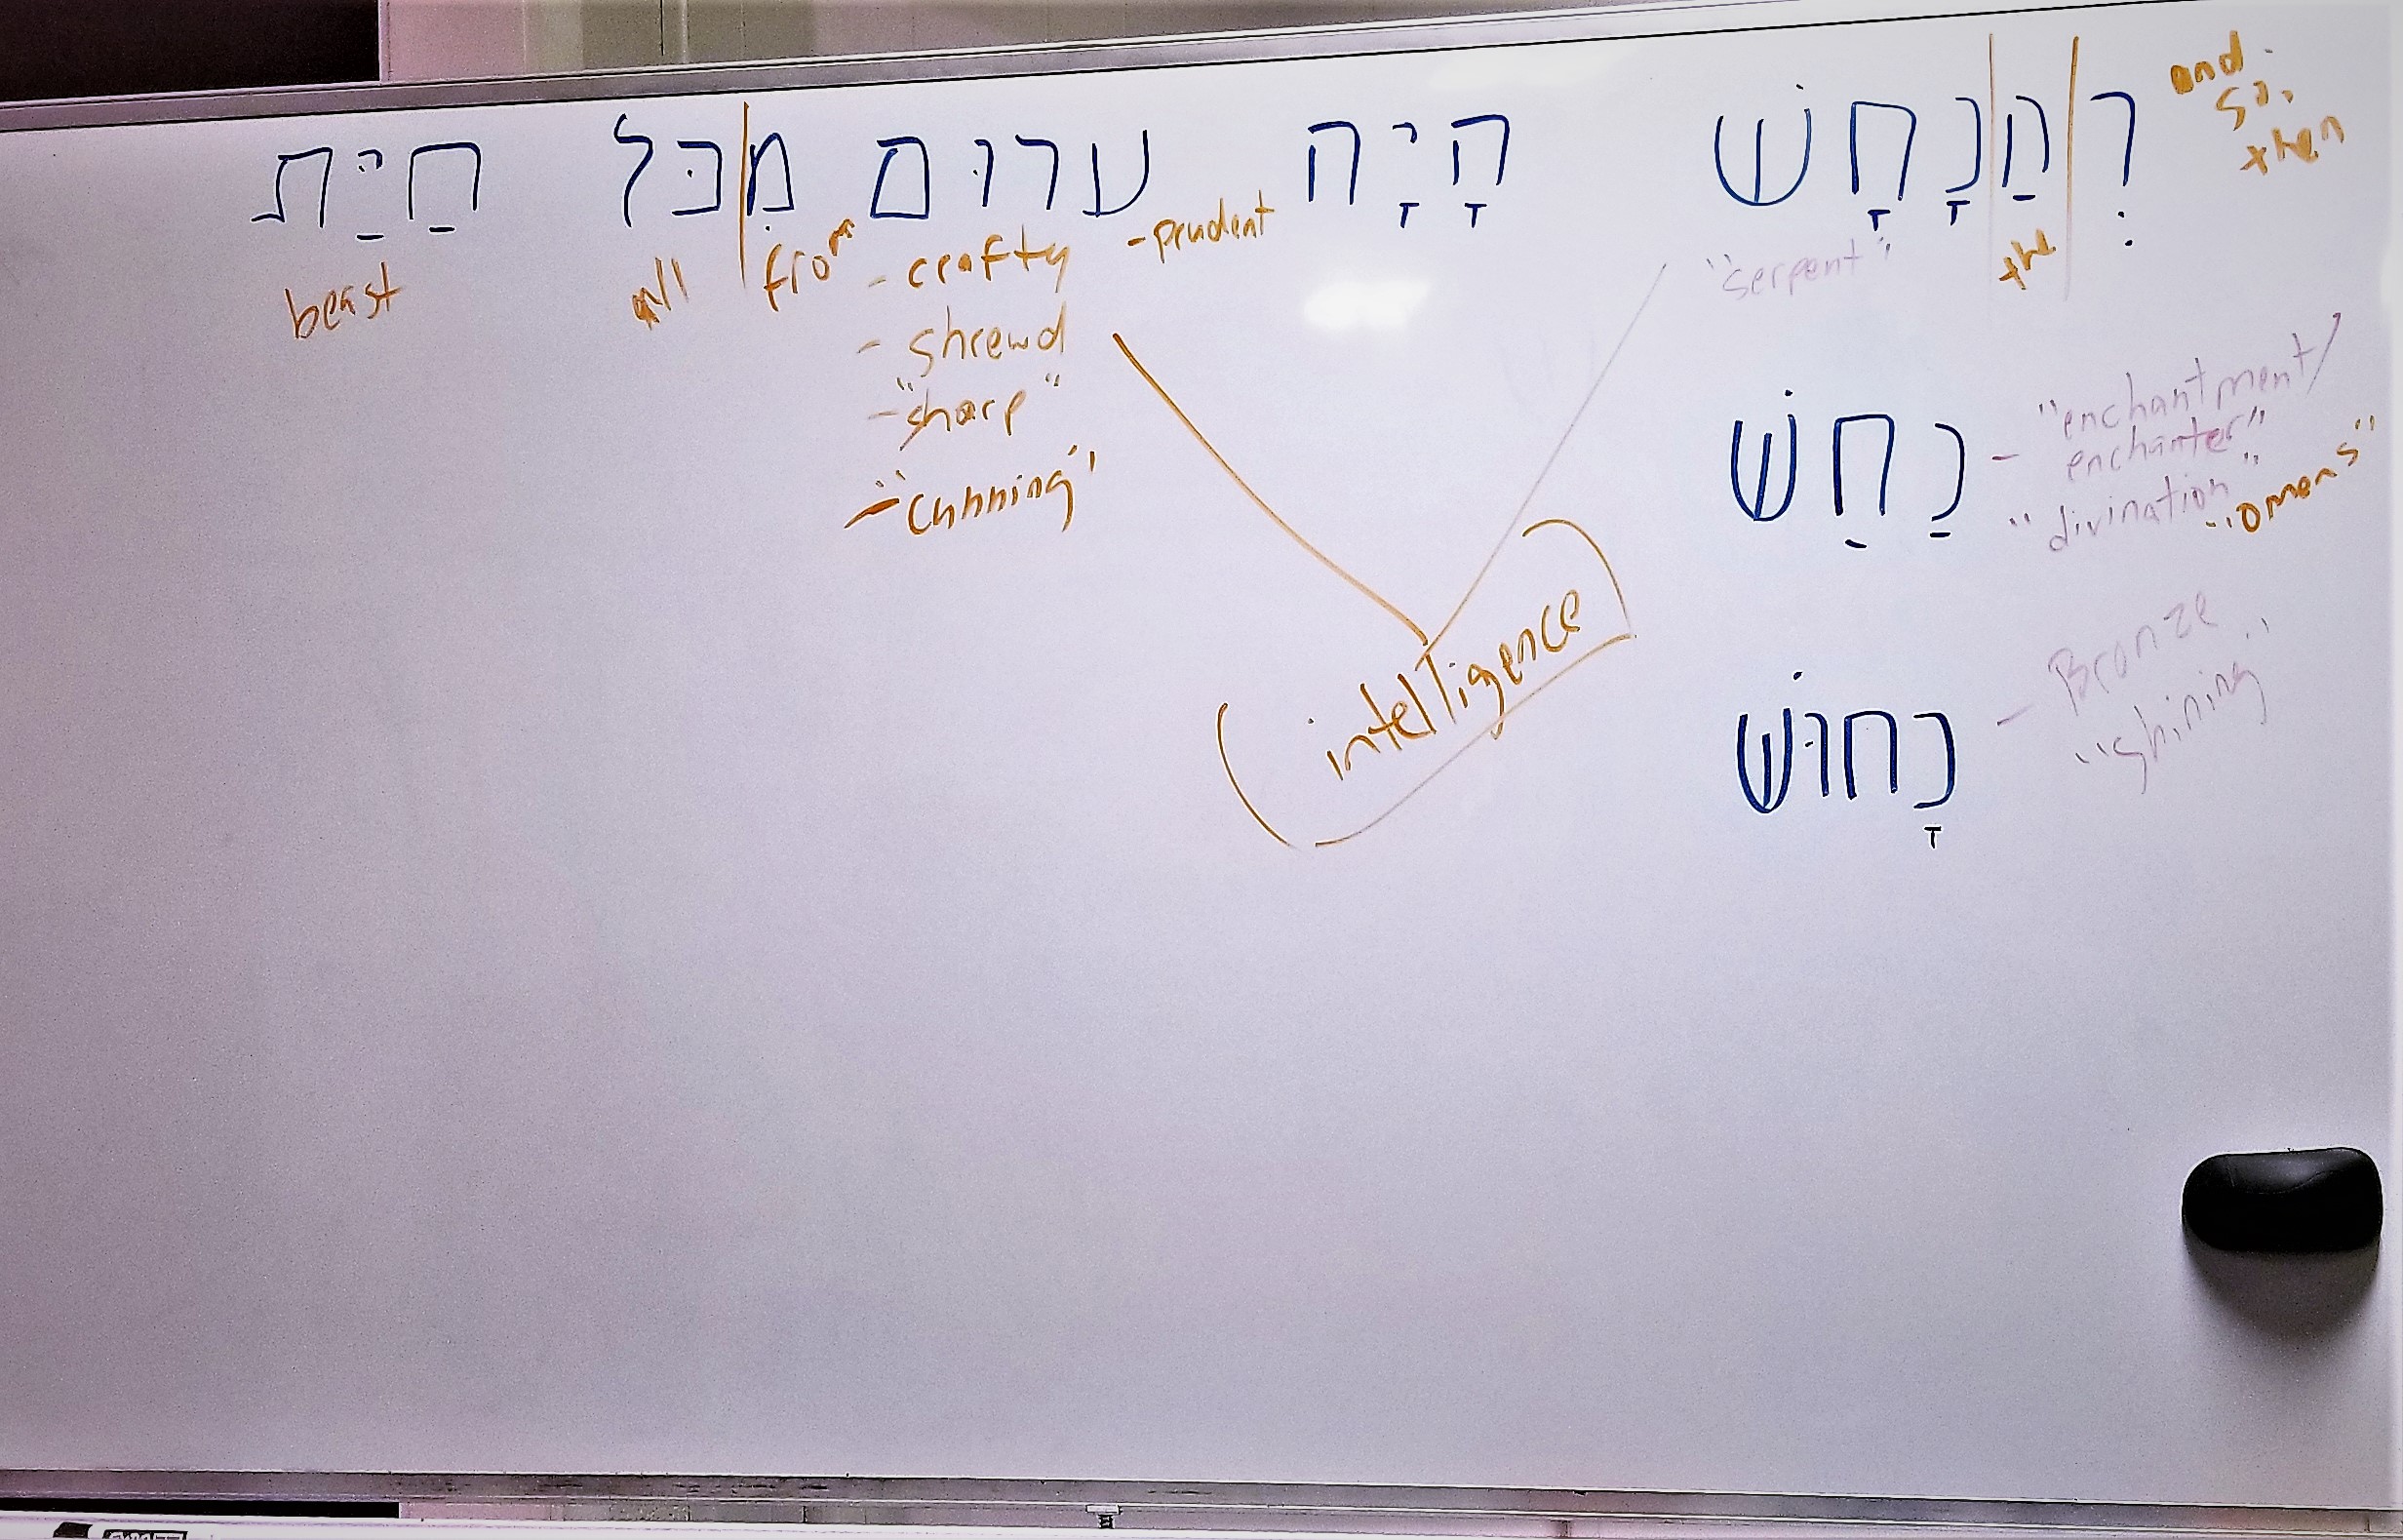 וְהַנָּחָשׁ הָיָה עָרוּם מִכֹּל חַיַּת
and
so,
then
the
"serpent"
-prudent
- crafty
- shrewd
- "sharp"
- "cunning"
from
all
beast
נַחַשׁ - "enchantment/
enchanter"
"divination"
"omens"
נָחוּשׁ - Bronze
"shining"
intelligence